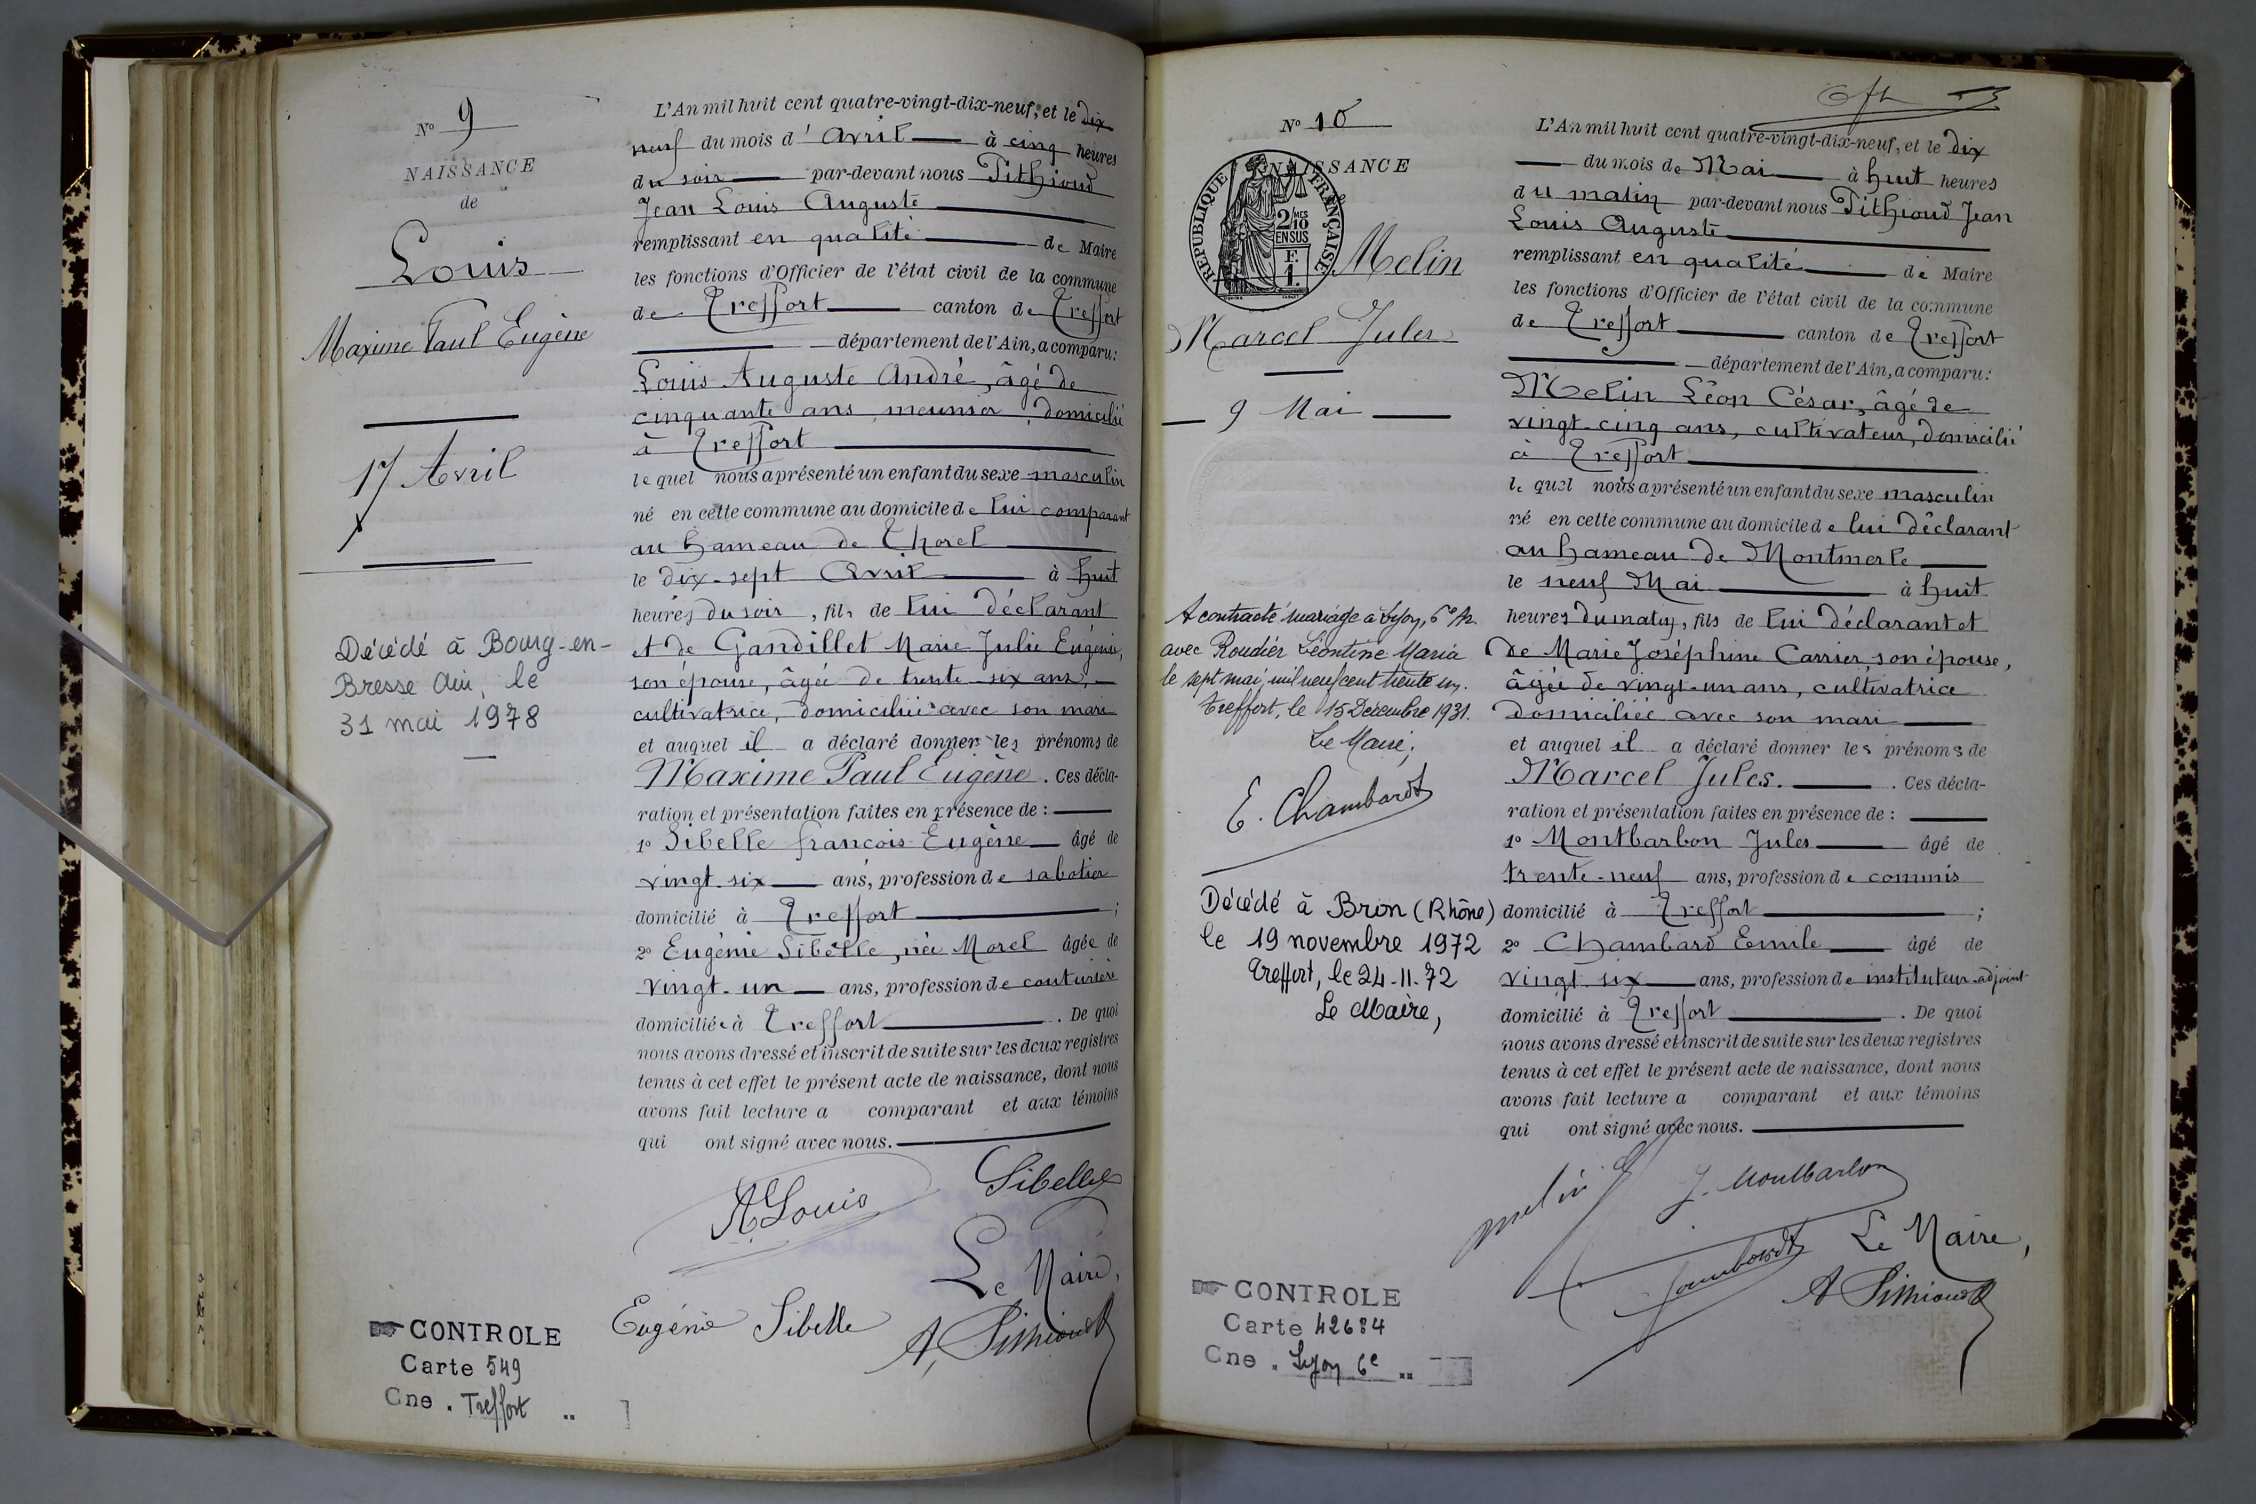 Nº 9
NAISSANCE
de
Louis
Maxime Paul Eugène
17 Avril
Décédé à Bourg-en-
Bresse Ain, le
31 mai 1978
CONTROLE
Carte 549
Cne . Treffort ..
L'An mil huit cent quatre-vingt-dix-neuf, et le dix
neuf du mois d' Avril à cinq heures
du soir par-devant nous Pithioud
Jean Louis Auguste
remplissant en qualité de Maire
les fonctions d'Officier de l'état civil de la commune
de Treffort canton de Treffort
département de l'Ain, a comparu:
Louis Auguste André, âgé de
cinquante ans, meunier, domicilié
à Treffort
lequel nous a présenté un enfant du sexe masculin
né en cette commune au domicile de lui comparant
au hameau de Thorel
le dix-sept Avril à huit
heures du soir, fils de lui déclarant
et de Gandillet Marie Julie Eugénie,
son épouse, âgée de trente-six ans,
cultivatrice, domiciliée avec son mari
et auquel il a déclaré donner les prénoms de
Maxime Paul Eugène. Ces décla-
ration et présentation faites en présence de :
1º Sibelle françois Eugène âgé de
vingt-six ans, profession de sabotier
domicilié à Treffort ;
2º Eugénie Sibelle, née Morel âgée de
vingt-un ans, profession de couturière
domiciliée à Treffort . De quoi
nous avons dressé et inscrit de suite sur les deux registres
tenus à cet effet le présent acte de naissance, dont nous
avons fait lecture a comparant et aux témoins
qui ont signé avec nous.
A Louis
Sibelle
Le Maire,
Eugénie Sibelle
A. Pithioud
Nº 10
NAISSANCE
REPUBLIQUE FRANÇAISE
2/10 MES
EN SUS
F.
1.
Melin
Marcel Jules
9 Mai
A contracté mariage à Lyon, 6e Ar.
avec Roudier Léontine Maria
le sept mai, mil neuf cent trente un.
Treffort, le 15 Décembre 1931.
Le Maire,
E. Chambard
Décédé à Bron (Rhône)
le 19 novembre 1972
Treffort, le 24-11-72
Le Maire,
CONTROLE
Carte 42684
Cne . Lyon 6e ..
L'An mil huit cent quatre-vingt-dix-neuf, et le dix
du mois de Mai à huit heures
du matin par-devant nous Pithioud Jean
Louis Auguste
remplissant en qualité de Maire
les fonctions d'Officier de l'état civil de la commune
de Treffort canton de Treffort
département de l'Ain, a comparu:
Melin Léon César, âgé de
vingt-cinq ans, cultivateur, domicilié
à Treffort
lequel nous a présenté un enfant du sexe masculin
né en cette commune au domicile de lui déclarant
au hameau de Montmerle
le neuf Mai à huit
heures du matin, fils de lui déclarant et
de Marie Joséphine Carrier son épouse,
âgée de vingt-un ans, cultivatrice
domiciliée avec son mari
et auquel il a déclaré donner les prénoms de
Marcel Jules. . Ces décla-
ration et présentation faites en présence de :
1º Montbarbon Jules âgé de
trente-neuf ans, profession de commis
domicilié à Treffort ;
2º Chambard Emile âgé de
vingt-six ans, profession de instituteur-adjoint
domicilié à Treffort . De quoi
nous avons dressé et inscrit de suite sur les deux registres
tenus à cet effet le présent acte de naissance, dont nous
avons fait lecture a comparant et aux témoins
qui ont signé avec nous.
melin
J. Montbarbon
Chambard
Le Maire,
A Pithioud